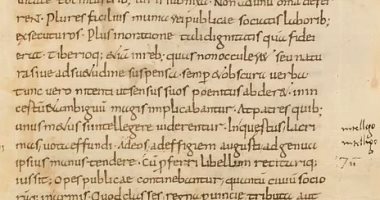 ren. Plures facilius munia reipublicae sociatis laborib;
exsecuturos. Plus inoratione tali dignitatis quā fidei
erat. Tiberioq; etiā inreb; quas nonocculeret seu natu
ra siue adsuetudine suspensa semp & obscura uerba
tunc uero nitenti utsensus suos poenitus abder& inin
certum & ambiguum magis implicabantur. At patres quib;
unus metus siintellegere uiderentur. Inquestus lacri
mas uota effundi. Ad deos ad effigiem augusti ad genua
ipsius manus tendere. Cum pferri libellum recitariq;
iussit. Opes publicae continebantur. quantū ciuiū socio
rūq; inarmis. Quod classes. regna puinciae tributa aut
intelligo
intelligo